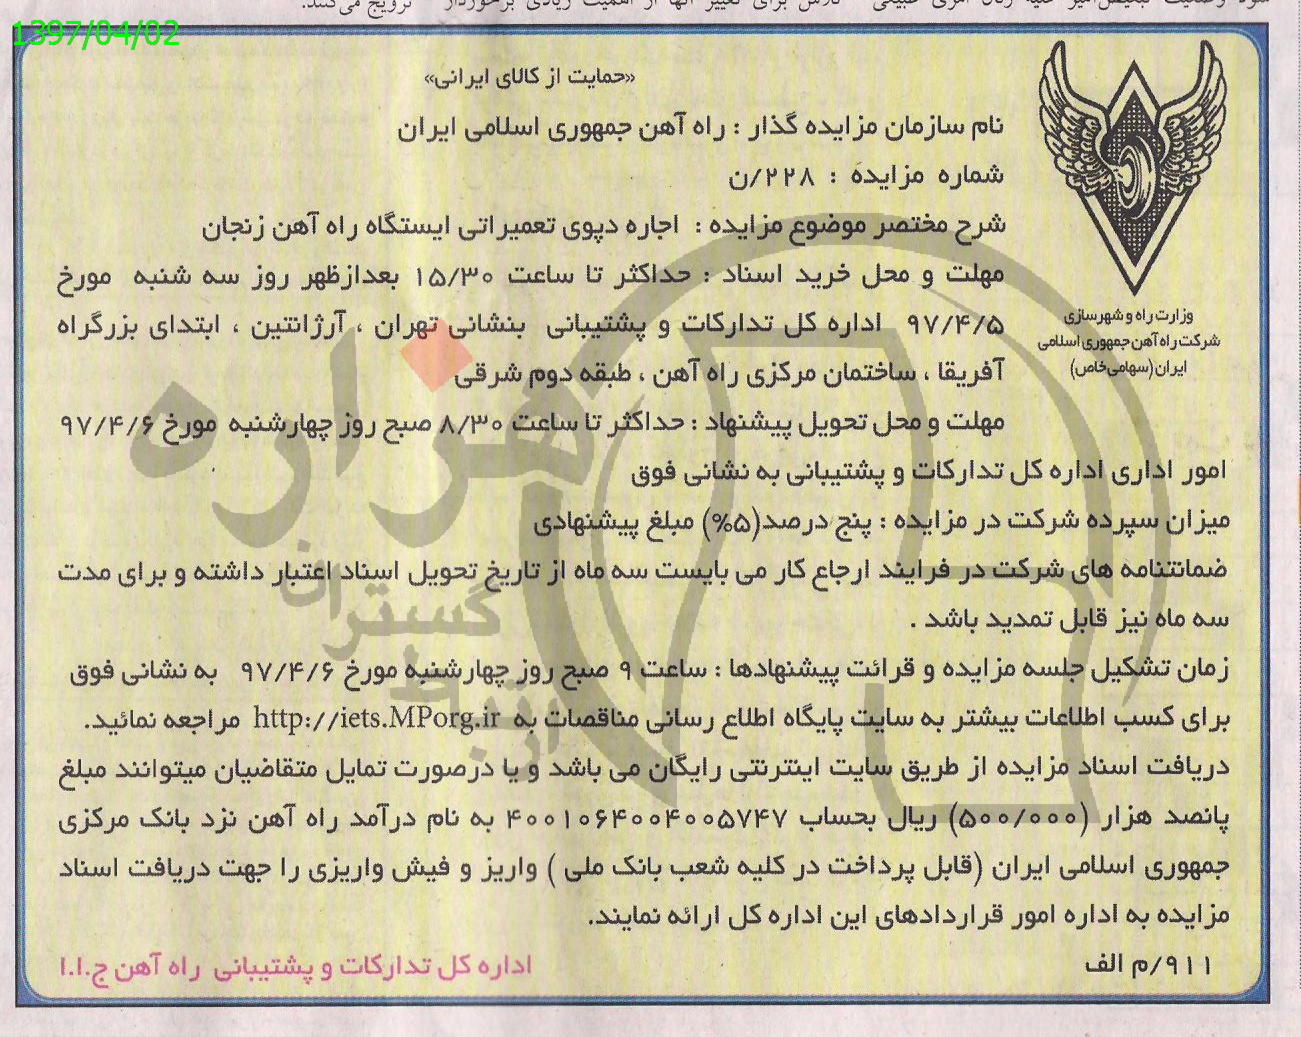 1397/04/02
«حمایت از کالای ایرانی»
نام سازمان مزایده گذار : راه آهن جمهوری اسلامی ایران
شماره مزایده : ۲۲۸/ن
شرح مختصر موضوع مزایده : اجاره دپوی تعمیراتی ایستگاه راه آهن زنجان
مهلت و محل خرید اسناد : حداکثر تا ساعت ۱۵/۳۰ بعدازظهر روز سه شنبه مورخ
۹۷/۴/۵ اداره کل تدارکات و پشتیبانی بنشانی تهران ، آرژانتین ، ابتدای بزرگراه
آفریقا ، ساختمان مرکزی راه آهن ، طبقه دوم شرقی
مهلت و محل تحویل پیشنهاد : حداکثر تا ساعت ۸/۳۰ صبح روز چهارشنبه مورخ ۹۷/۴/۶
وزارت راه و شهرسازی
شرکت راه آهن جمهوری اسلامی
ایران (سهامی خاص)
امور اداری اداره کل تدارکات و پشتیبانی به نشانی فوق
میزان سپرده شرکت در مزایده : پنج درصد(۵%) مبلغ پیشنهادی
ضمانتنامه های شرکت در فرایند ارجاع کار می بایست سه ماه از تاریخ تحویل اسناد اعتبار داشته و برای مدت
سه ماه نیز قابل تمدید باشد .
زمان تشکیل جلسه مزایده و قرائت پیشنهادها : ساعت ۹ صبح روز چهارشنبه مورخ ۹۷/۴/۶ به نشانی فوق
برای کسب اطلاعات بیشتر به سایت پایگاه اطلاع رسانی مناقصات به http://iets.MPorg.ir مراجعه نمائید.
دریافت اسناد مزایده از طریق سایت اینترنتی رایگان می باشد و یا درصورت تمایل متقاضیان میتوانند مبلغ
پانصد هزار (۵۰۰/۰۰۰) ریال بحساب ۴۰۰۱۰۶۴۰۰۴۰۰۵۷۴۷ به نام درآمد راه آهن نزد بانک مرکزی
جمهوری اسلامی ایران (قابل پرداخت در کلیه شعب بانک ملی ) واریز و فیش واریزی را جهت دریافت اسناد
مزایده به اداره امور قراردادهای این اداره کل ارائه نمایند.
۹۱۱/م الف
اداره کل تدارکات و پشتیبانی راه آهن ج.ا.ا
هزاره
گستران